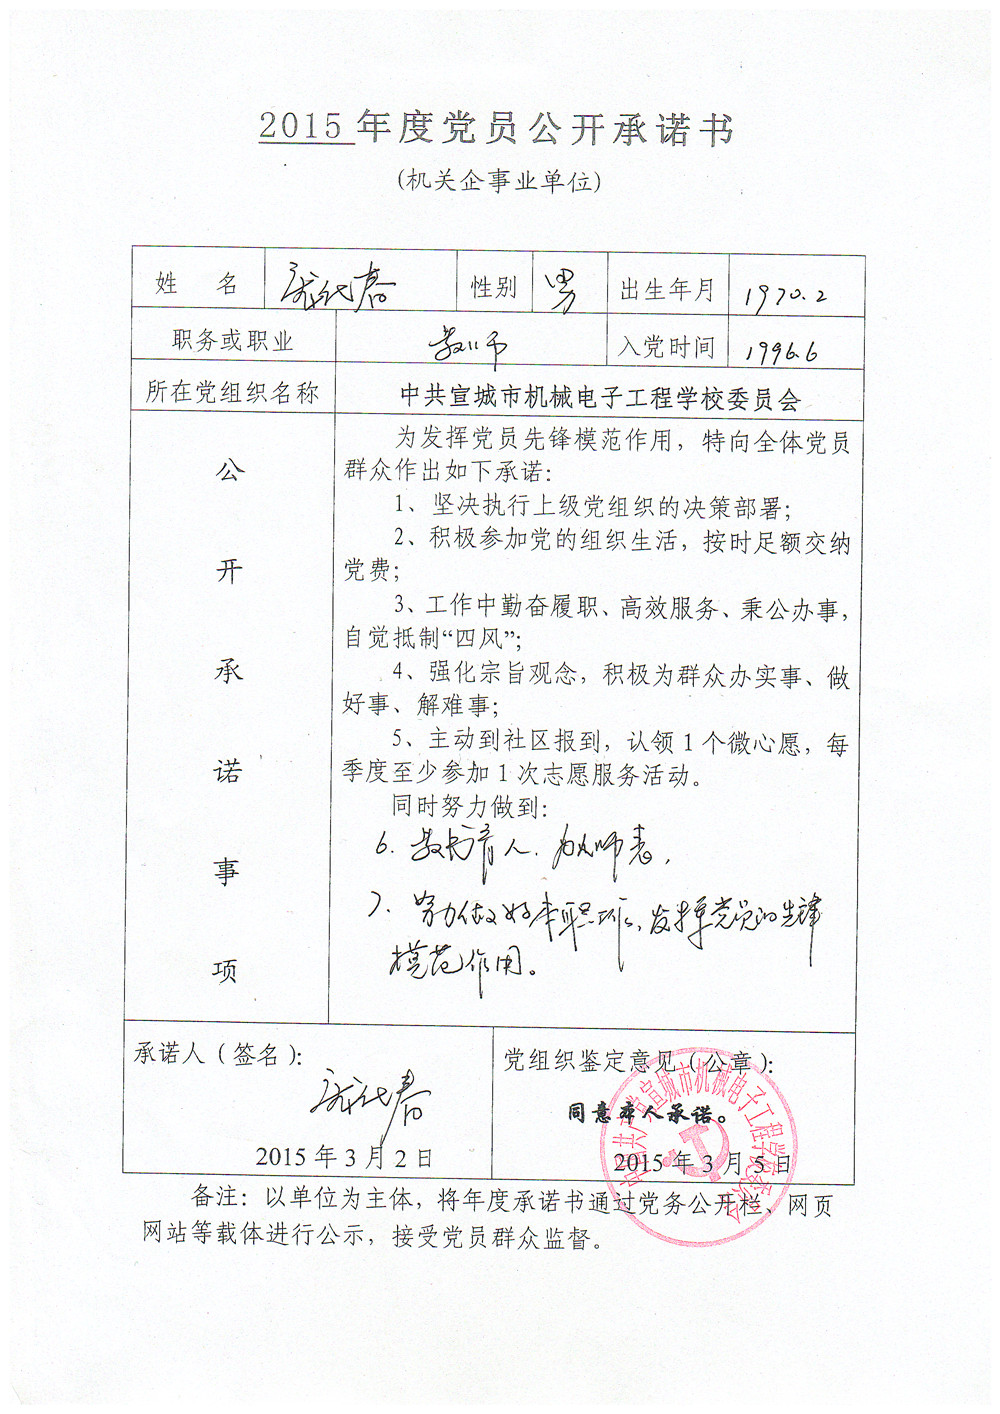 2015年度党员公开承诺书
(机关企事业单位)
姓 名 性别 男 出生年月 1970.2
职务或职业 教师 入党时间 1996.6
所在党组织名称 中共宣城市机械电子工程学校委员会
公开承诺事项
为发挥党员先锋模范作用，特向全体党员
群众作出如下承诺：
1、坚决执行上级党组织的决策部署；
2、积极参加党的组织生活，按时足额交纳
党费；
3、工作中勤奋履职、高效服务、秉公办事，
自觉抵制“四风”；
4、强化宗旨观念，积极为群众办实事、做
好事、解难事；
5、主动到社区报到，认领1个微心愿，每
季度至少参加1次志愿服务活动。
同时努力做到：
6. 教书育人.为人师表，
7. 努力做好本职工作、发挥党员的先锋
模范作用。
承诺人（签名）：
2015年3月2日
党组织鉴定意见（公章）：
同意本人承诺。
2015年3月5日
中国共产党宣城市机械电子工程学校委员会
备注：以单位为主体，将年度承诺书通过党务公开栏、网页
网站等载体进行公示，接受党员群众监督。